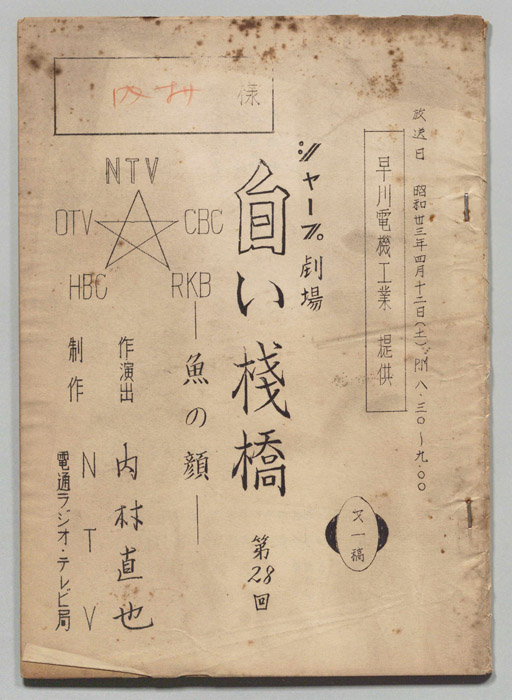 放送日 昭和卅三年四月十二日(土) PM 八・三〇～九・〇〇
早川電機工業 提供
才一稿
シャープ劇場
白い棧橋
第28回
―魚の顔―
作演出 内村直也
制作 NTV
電通ラジオ・テレビ局
様
NTV
OTV
CBC
HBC
RKB